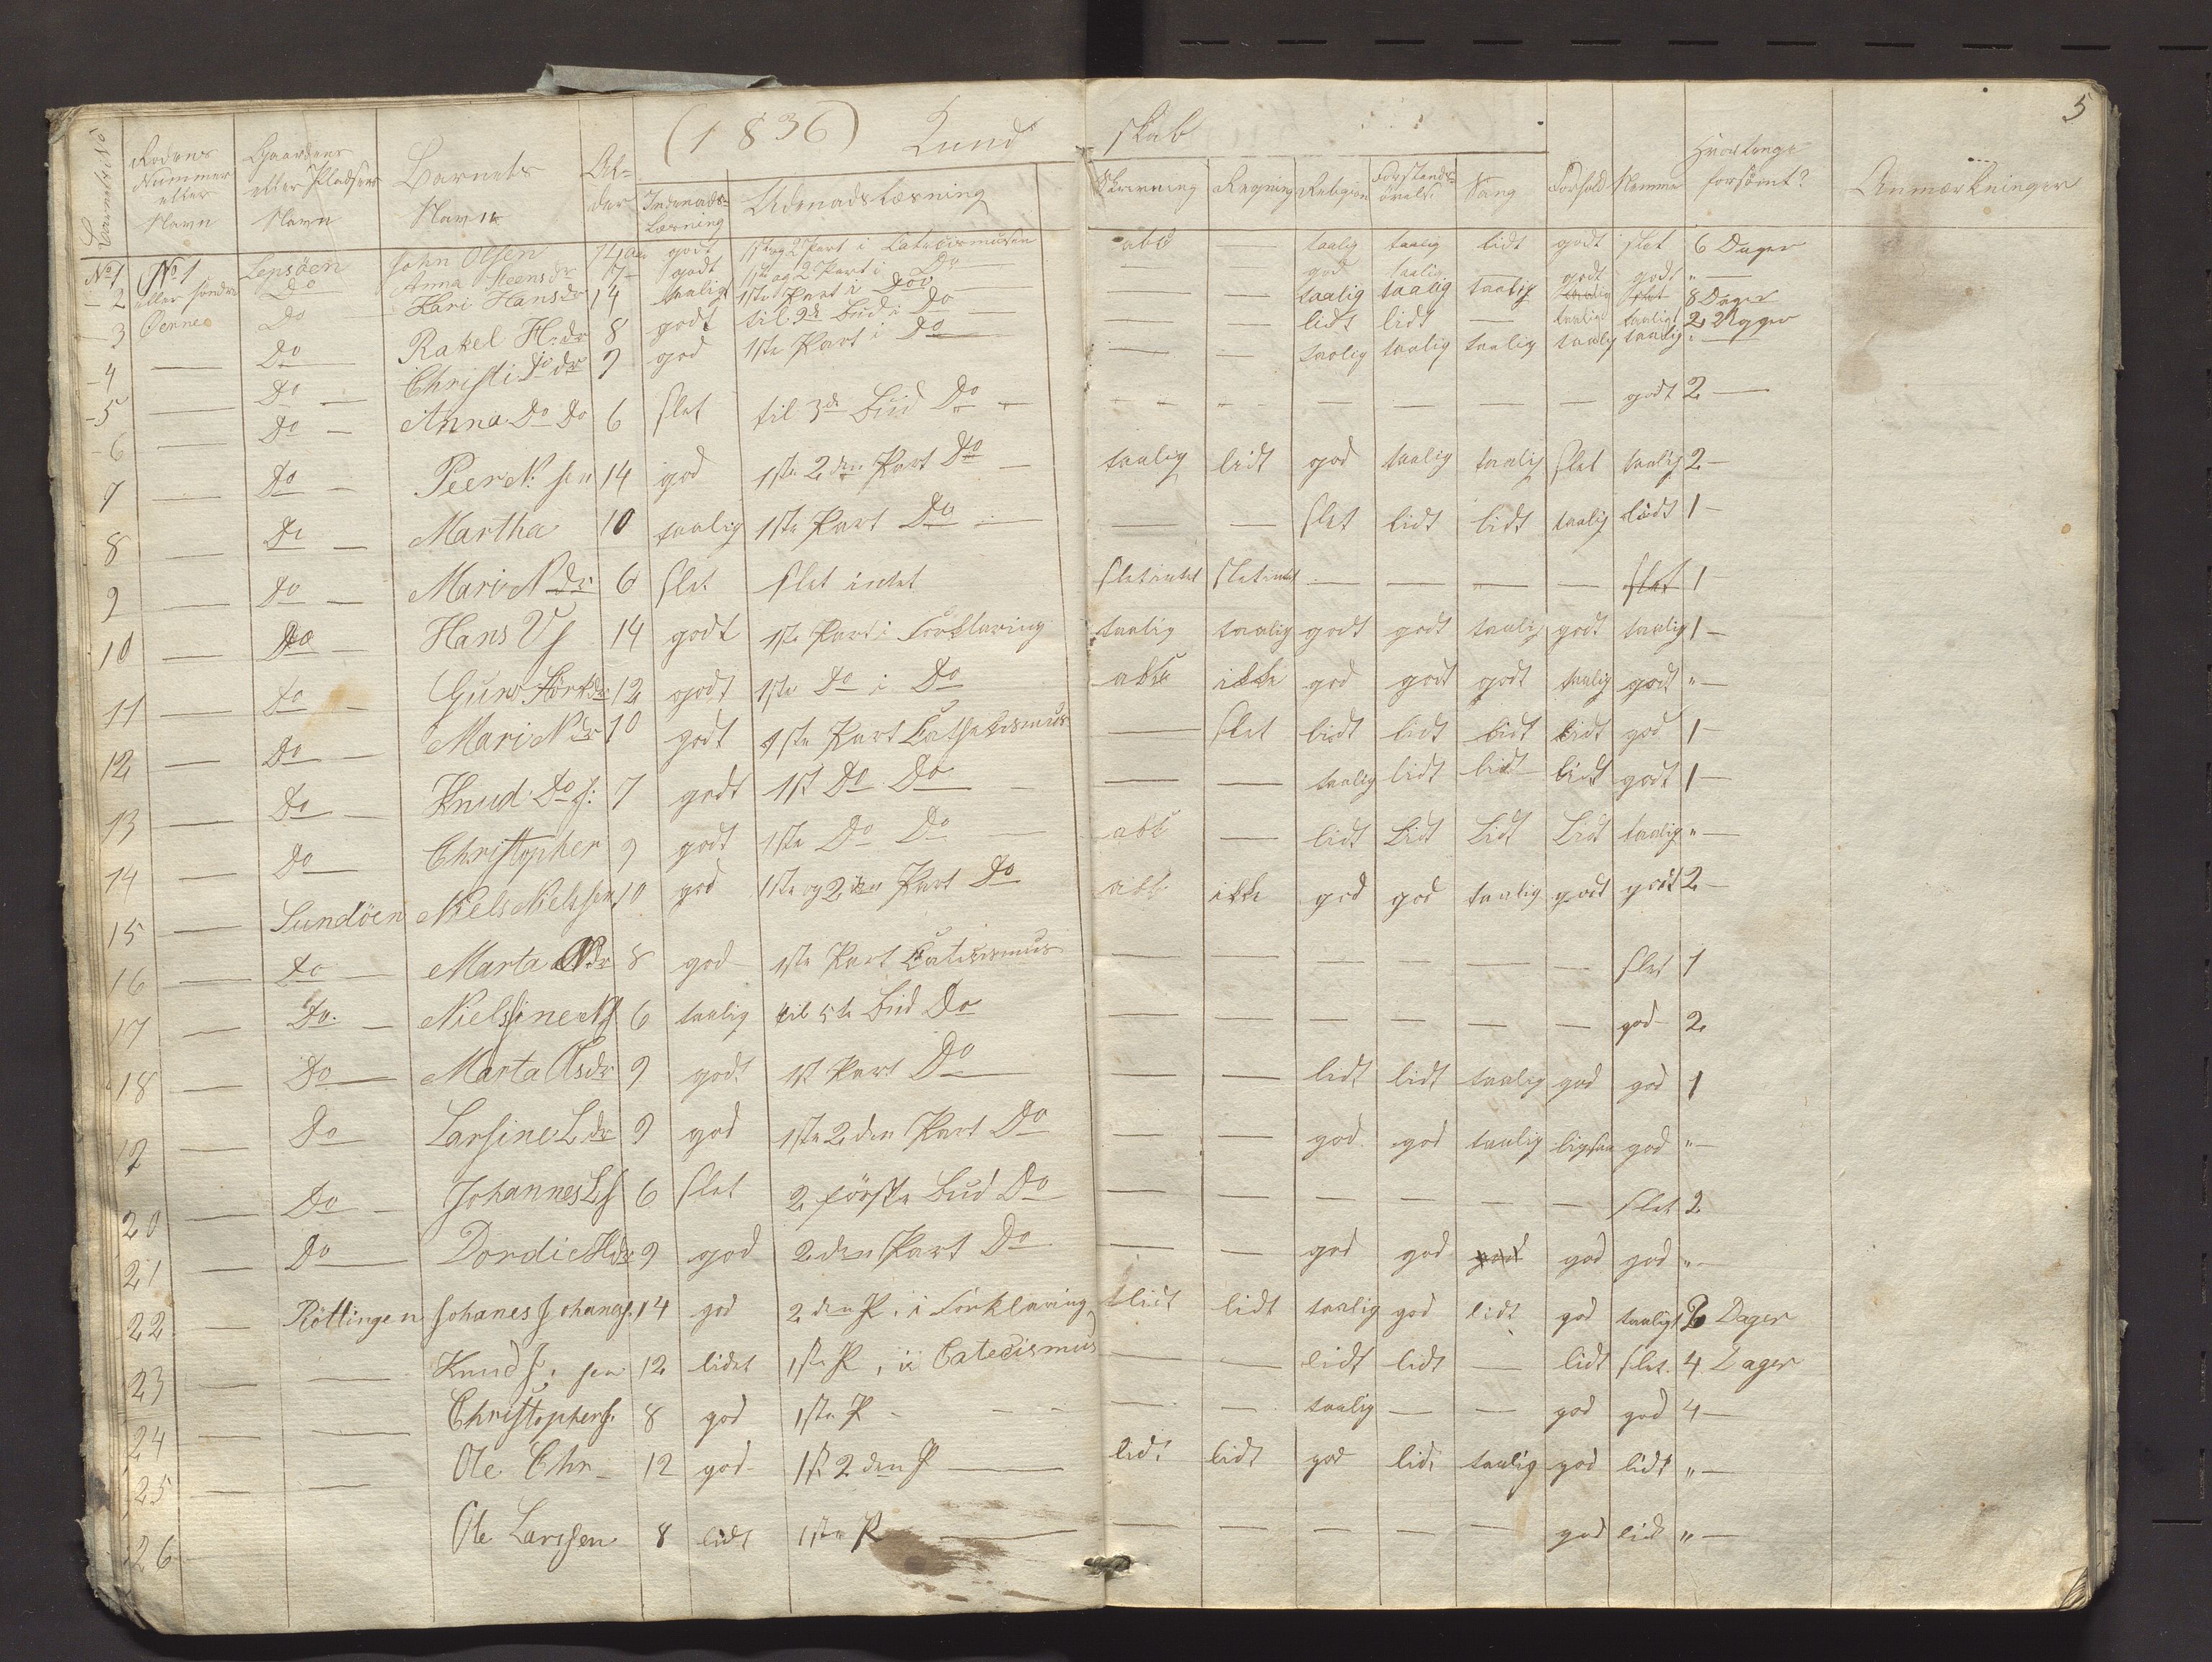 5
(1836) Kundskab
Barnets No | Rodens Nummer eller Navn | Gaardens eller Pladsens Navn | Barnets Navn | Alder | Indenads-Læsning | Udenadslæsning | Skrivning | Regning | Religion | Forstands-øvelse | Sang | Forhold | Nemme | Hvorlenge forsömt? | Anmærkninger
No 1 | No 1 | Lepsöen | John Olsen | 14 Aar | godt | 1ste og 2 Part i Catecismusen | abc | — | taalig | taalig | lidt | godt | slet | 6 Dager
- 2 | eller söndre | Do | Anna Steensdr | 7 - | godt | 1ste og 2 Part i Do | — | — | god | taalig | — | godt | godt | " —
3 | Öerne | Do | Kari Hansdr | 14 | taalig | 1ste Part i Do | — | — | taalig | taalig | taalig | taalig | slet | 8 Dager
- 4 | — | Do | Rakel H.dr | 8 | godt | til 9de Bud i Do | — | — | lidt | lidt | — | taalig | taalig | 2 Uger
- 5 | — | Do | Christi Do dr | 9 | god | 1ste Part i Do | — | — | taalig | taalig | taalig | taalig | taalig | " —
- 6 | — | Do | Anna Do Do | 6 | slet | til 3de Bud Do | — | — | — | — | — | — | godt | 2 —
7 | — | Do | Peer N. sen | 14 | god | 1ste 2den Part Do | taalig | lidt | god | taalig | taalig | slet | taalig | 2 —
8 | — | Do | Martha | 10 | taalig | 1ste Part Do | — | — | slet | lidt | lidt | taalig | lidt | 1 —
9 | — | Do | Mari N dr | 6 | slet | slet intet | slet intet | slet intet | — | — | — | — | slet | 1 —
10 | — | Do | Hans | 14 | godt | 1ste Part i Forklaring | taalig | taalig | godt | godt | taalig | godt | taalig | 1 —
11 | — | Do | Guro | 12 | godt | 1ste Do i Do | abc | ikke | god | godt | godt | taalig | godt | " —
12 | — | Do | Mari N dr | 10 | godt | 1ste Part Cathekismus | — | slet | lidt | lidt | lidt | lidt | god | 1 —
13 | — | Do | Knud Do s: | 7 | godt | 1st Do Do | — | — | taalig | lidt | lidt | lidt | godt | 1 —
14 | — | Do | Christopher | 9 | godt | 1ste Do Do | abc | — | lidt | Lidt | Lidt | Lidt | taalig | " —
15 | — | Sundöen | Niels Nielssen | 10 | god | 1ste og 2den Part Do | abc | ikke | god | god | taalig | godt | godt | 2 —
16 | — | Do | Marta N dr | 8 | god | 1ste Part Catecismus | — | — | — | — | — | — | slet | 1
17 | — | Do | Nielssine | 6 | taalig | til 5te Bud Do | — | — | — | — | — | — | god | 2
18 | — | Do | Marta | 9 | godt | 1st Part Do | — | — | lidt | lidt | taalig | god | god | 1
19 | Do | Larsine L dr | 9 | god | 1ste 2den Part Do | — | — | god | god | taalig | ligesaa | god | " —
20 | — | Do | Johannes L s | 6 | slet | 2 förste Bud Do | — | — | — | — | — | — | slet | 2
21 | — | Do | Dordi | 9 | god | 2den Part Do | — | — | god | god | god | god | god | " —
22 | — | Röttingen | Johanes Johanes. | 14 | god | 2den P. i Forklaring | lidt | lidt | taalig | god | lidt | god | taalig | 6 Dager
23 | — | — | Knud J: sen | 12 | lidet | 1ste P. i Catecismus | — | — | lidt | lidt | — | lidt | slet. | 4 Dager
24 | — | — | Christopher | 8 | god | 1ste P - | — | — | taalig | — | — | god | god | 4 —
25 | — | — | Ole Chr - | 12 | god | 1st 2den P — | lidt | lidt | god | lidt | taalig | god | lidt | " —
26 | Ole Larssen | 8 | lidt | 1ste P — | — | — | — | — | — | god | lidt | " —